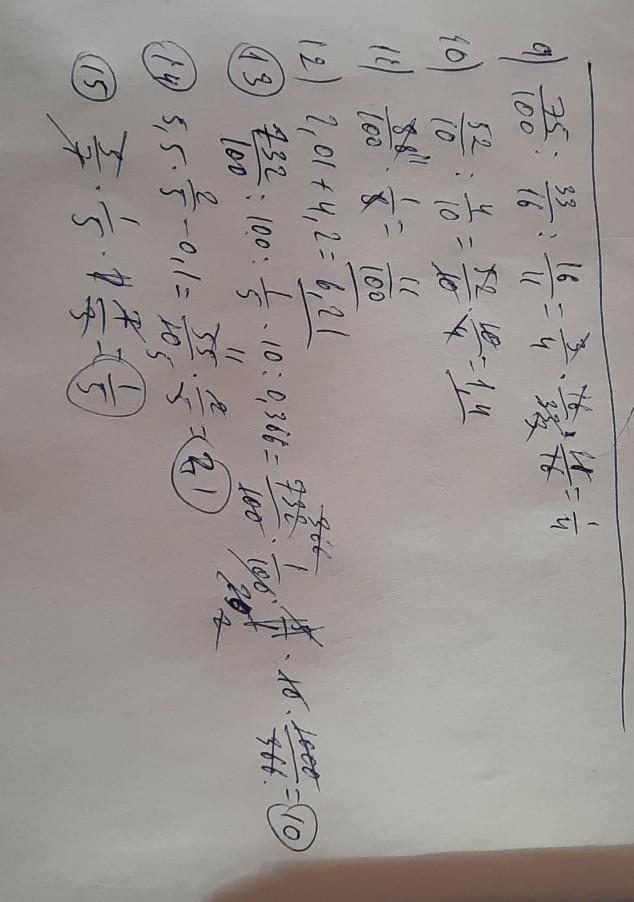 9) 75/100 : 33/16 : 16/11 = 3/4 · 16/33 · 11/16 = 1/4
10) 52/10 : 4/10 = 52/10 · 10/4 = 1,4
11) 88/100 · 1/8 = 11/100
12) 2,01 + 4,2 = 6,21
13 732/100 : 100 : 1/5 · 10 : 0,366 = 732/100 · 1/100 · · 10 · 1000/366 = 10
14 5,5 · 2/5 - 0,1 = 55/10 · 2/5 = 2,1
15 3/7 · 1/5 · 7/3 = 1/5